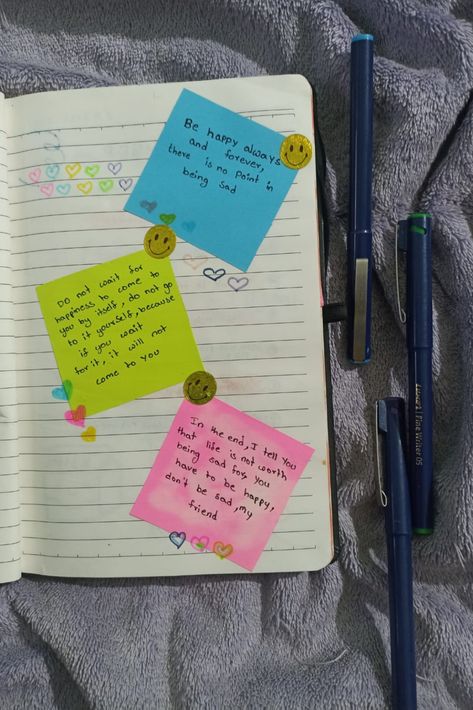 Be happy always
and forever,
there is no point in
being sad
Do not wait for
happiness to come to
you by itself, do not go
to it yourself, because
if you wait
for it, it will not
come to you
In the end, I tell you
that life is not worth
being sad for, you
have to be happy,
don't be sad, my
friend
Fine Writer 05